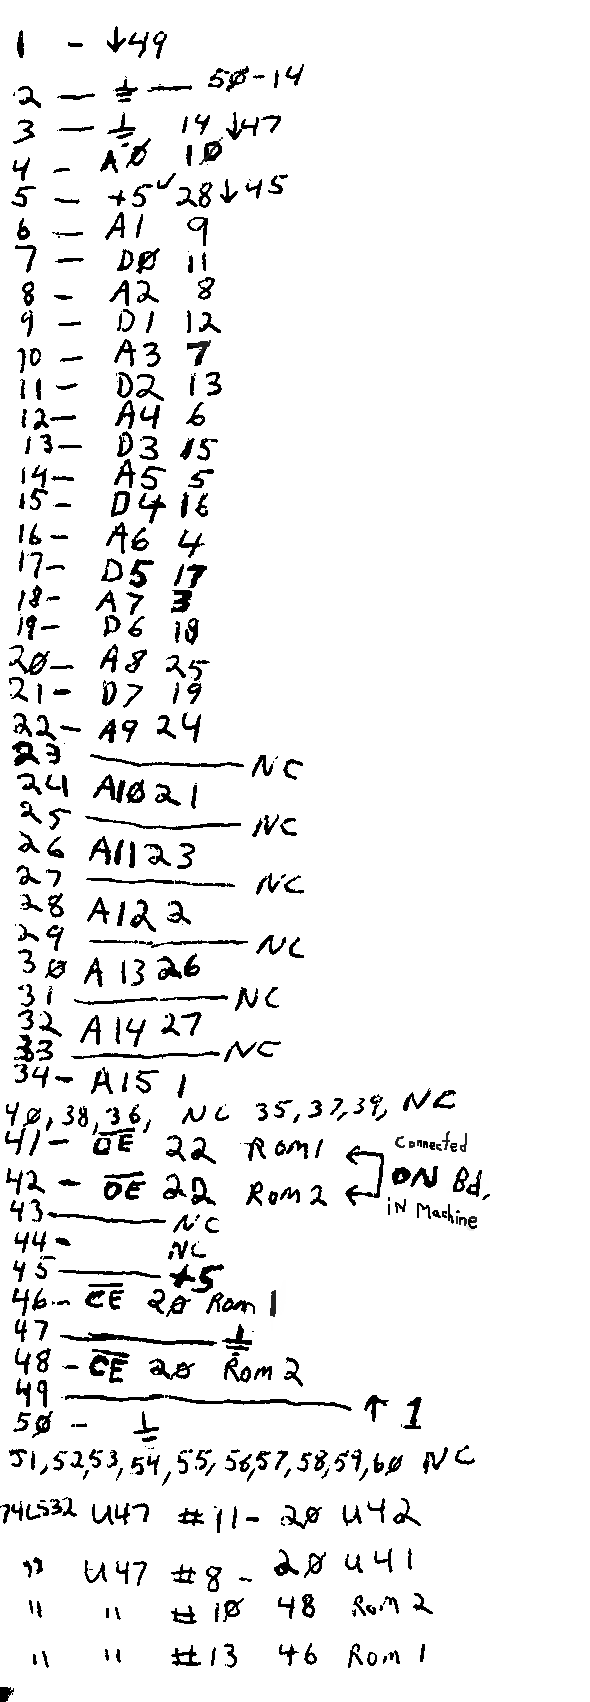 1 - ↓49
2 — ⏚ — 5Ø-14
3 — ⏚ 14 ↓47
4 - AØ 1Ø
5 - +5✓ 28 ↓45
6 - A1 9
7 - DØ 11
8 - A2 8
9 - D1 12
10 - A3 7
11 - D2 13
12- A4 6
13- D3 15
14- A5 5
15- D4 16
16- A6 4
17- D5 17
18- A7 3
19- D6 18
2Ø- A8 25
21- D7 19
22- A9 24
23 ——— NC
24 A1Ø 21
25 ——— NC
26 A11 23
27 ——— NC
28 A12 2
29 ——— NC
3Ø A13 26
31 ——— NC
32 A14 27
33 ——— NC
34- A15 1
4Ø,38,36, NC 35,37,39, NC
41- O̅E̅ 22 Rom 1 ← Connected
42 - O̅E̅ 22 Rom 2 ← ON Bd,
iN Machine
43 ——— NC
44 - NC
45 ——— +5
46- C̅E̅ 2Ø Rom 1
47 ——— ⏚
48 - C̅E̅ 2Ø Rom 2
49 ——— ↑ 1
5Ø - ⏚
51,52,53,54,55,56,57,58,59,6Ø NC
74LS32 U47 #11- 2Ø U42
" U47 #8 - 2Ø U41
" " #1Ø 48 Rom 2
" " #13 46 Rom 1